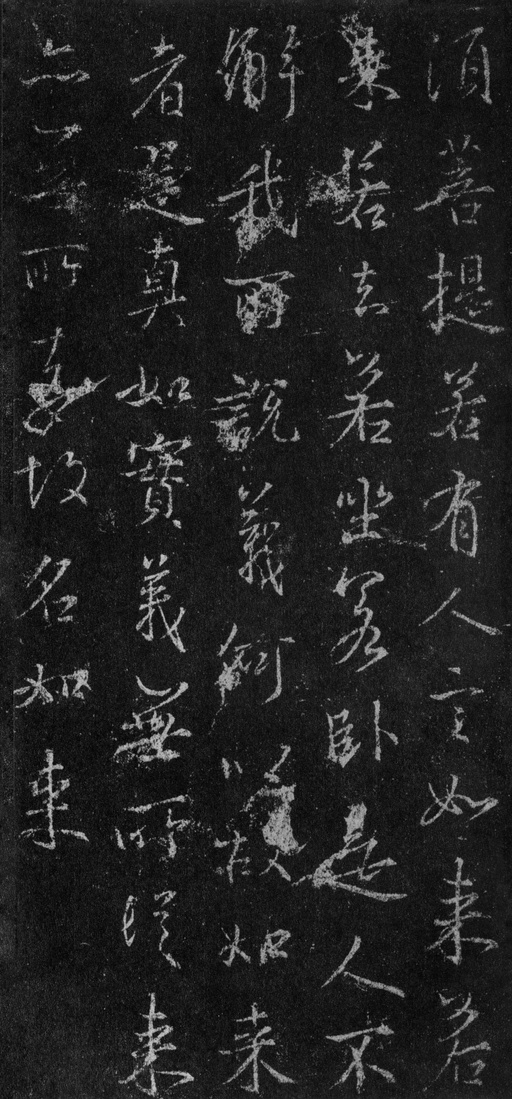 須菩提若有人言如来若
来若去若坐若卧是人不
解我所說義何以故如来
者是真如實義無所從来
亦無所去故名如来